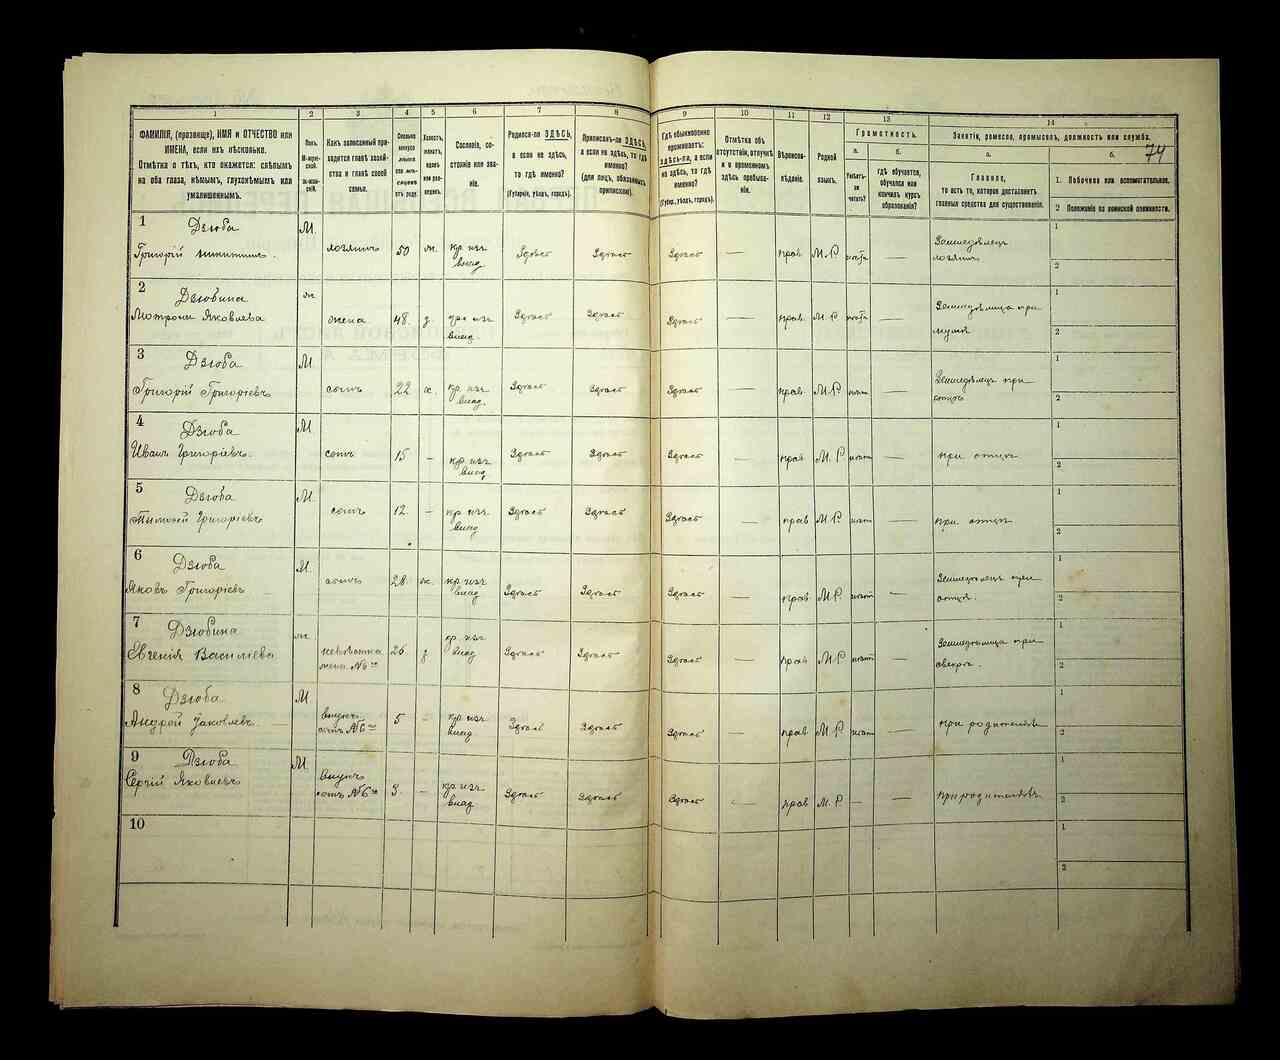 1
2
3
4
5
6
7
8
9
10
11
12
13
14
ФАМИЛІЯ, (прозвище), ИМЯ и ОТЧЕСТВО или
ИМЕНА, если ихъ нѣсколько.
Отмѣтка о тѣхъ, кто окажется: слѣпымъ
на оба глаза, нѣмымъ, глухонѣмымъ или
умалишеннымъ.
Полъ.
Какъ записанный при-
ходится главѣ хозяй-
ства и главѣ своей
семьи.
Холостъ,
женатъ,
вдовъ
или раз-
веденъ.
Сословіе, со-
стояніе или зва-
ніе.
Родился-ли ЗДѢСЬ,
а если не здѣсь,
то гдѣ именно?
(Губернія, уѣздъ, городъ).
Приписанъ-ли ЗДѢСЬ,
а если не здѣсь, то гдѣ
именно?
(для лицъ, обязанныхъ
припискою).
Гдѣ обыкновенно
проживаетъ:
здѣсь-ли, а если
не здѣсь, то гдѣ
именно?
(Губер., уѣздъ, городъ).
Отмѣтка объ
отсутствіи, отлучкѣ
и о временномъ
здѣсь пребыва-
ніи.
Вѣроиспо-
вѣданіе.
Родной
языкъ.
Грамотность.
а.
б.
Умѣетъ-
ли
читать?
гдѣ обучается,
обучался или
кончилъ курсъ
образованія?
Занятіе, ремесло, промыселъ, должность или служба.
а.
б.
74
Главное,
то есть то, которое доставляетъ
главныя средства для существованія.
1. Побочное или вспомогательное.
2 Положеніе по воинской повинности.
1
Дзюба
Григорій Никитинъ.
М.
хозяинъ
50
ж.
кр изъ
влад
Здѣсь
Здѣсь
Здѣсь
—
прав
М. Р
—
Земледѣлец
хозяинъ
1
2
2
Дзюбина
Мотрона Яковлева
ж
жена
48.
з
кр изъ
влад
Здѣсь
Здѣсь
Здѣсь
—
прав.
М. Р
—
Земледѣлица при
мужѣ
1
2
3
Дзюба
Григорій Григоріевъ
М
сынъ
22
х.
кр. изъ
влад.
Здѣсь
Здѣсь
Здѣсь
—
прав
М.Р
—
Земледѣлец при
отцѣ
1
2
4
Дзюба
Иванъ Григоріевъ.
М
сынъ
15
–
кр изъ
влад
Здѣсь
Здѣсь
Здѣсь
—
прав
М. Р
—
при отцѣ
1
2
5
Дзюба
Тимофей Григоріевъ
М.
сынъ
12.
–
кр изъ
влад
Здѣсь
Здѣсь
Здѣсь
—
прав
М Р
—
при отцѣ
1
2
6
Дзюба
Яковъ Григоріевъ
М.
сынъ
28.
ж.
кр изъ
влад
Здѣсь
Здѣсь
Здѣсь
—
прав
М.Р
—
Земледѣлец при
отцѣ.
1
2
7
Дзюбина
Евгенія Василіева
ж
невѣстка
жена №6го
26
з
кр изъ
влад
Здѣсь
Здѣсь
Здѣсь
—
прав
М.Р
—
Земледѣлица при
свекрѣ.
1
2
8
Дзюба
Андрей Яковлевъ
М
внукъ
сынъ №6го
5
–
кр изъ
влад
Здѣсь
Здѣсь
Здѣсь
—
прав
М. Р
—
при родителяхъ
1
2
9
Дзюба
Сергій Яковлевъ
М.
внукъ
сынъ №6го
3.
–
кр изъ
влад
Здѣсь
Здѣсь
Здѣсь
—
прав
М. Р
–
—
при родителяхъ
1
2
10
1
2